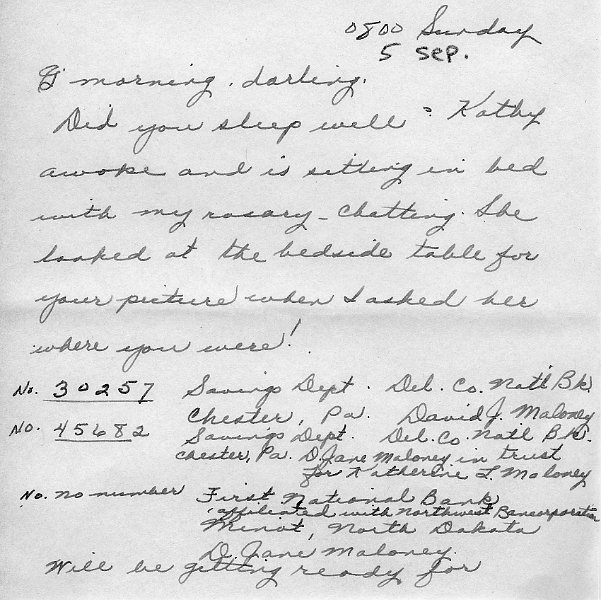 0800 Sunday
5 Sep.
G' morning, darling.
Did you sleep well? Kathy
awoke and is sitting in bed
with my rosary - chatting. She
looked at the bedside table for
your picture when I asked her
where you were!
No. 30257 Savings Dept. Del. Co. Nat'l Bk.
Chester, Pa. David J. Maloney
No. 45682 Savings Dept. Del. Co. Natl Bk.
Chester, Pa. D. Jane Maloney in trust
for Katherine L. Maloney
No. no number First National Bank
affiliated with Northwest Bancorporation
Minot, North Dakota
D. Jane Maloney
Will be getting ready for